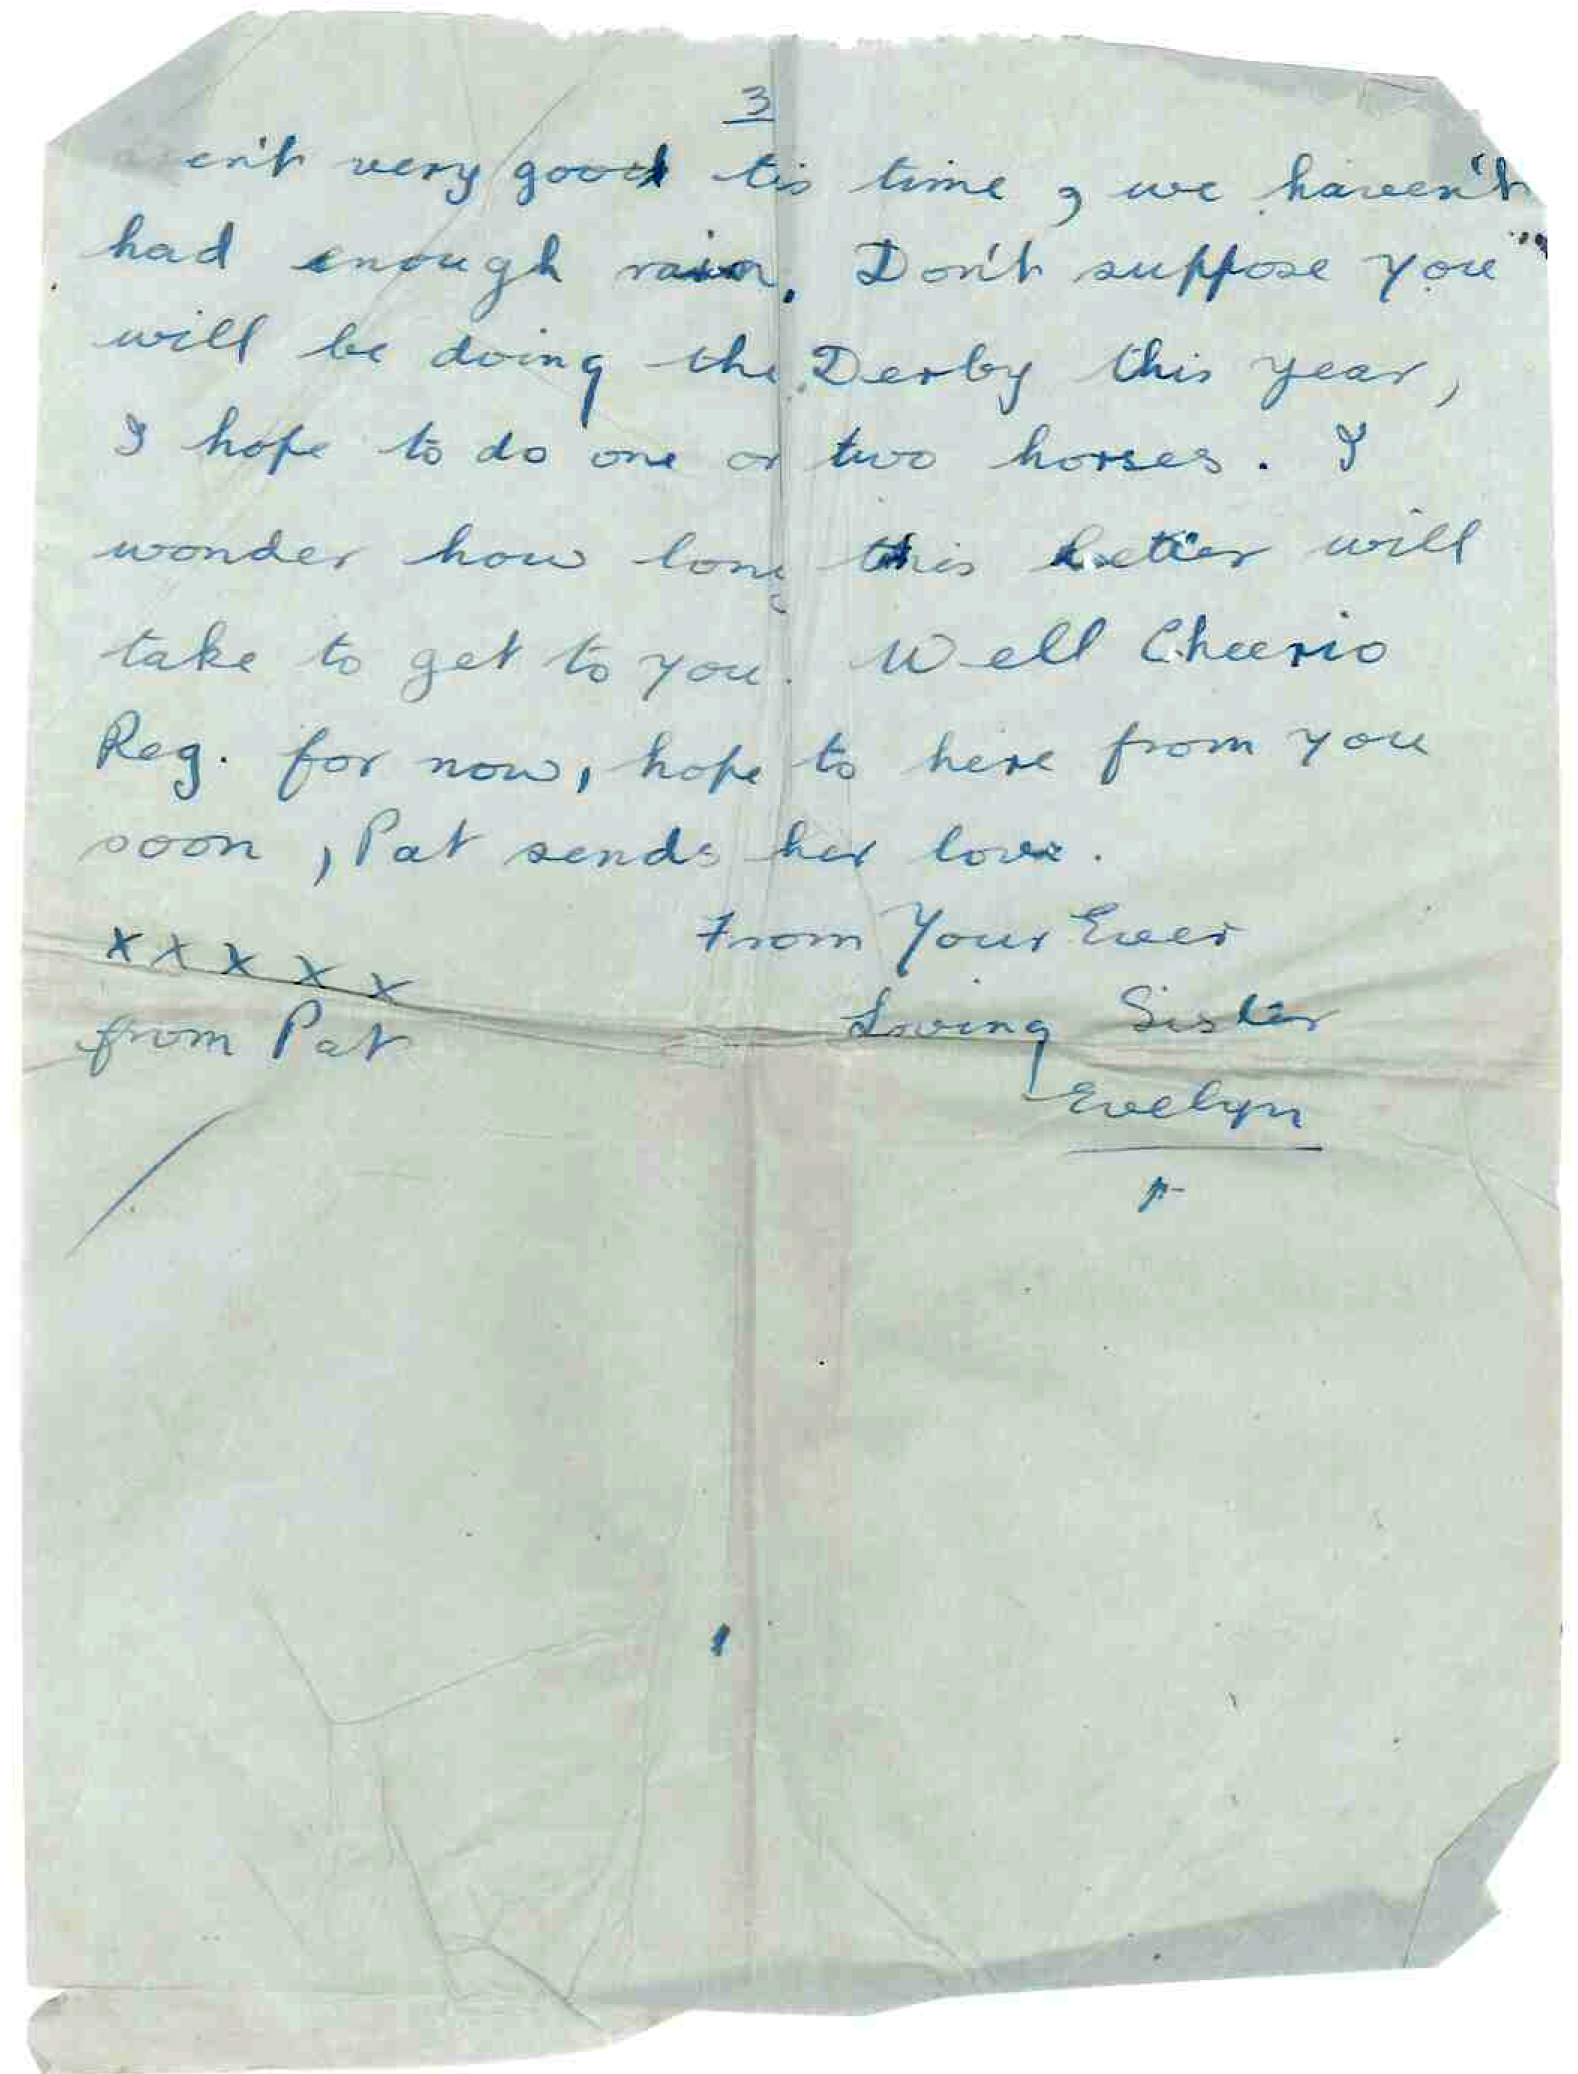 3
aren't very good tis time, we haven't
had enough rain. Don't suppose you
will be doing the Derby this year,
I hope to do one or two horses. I
wonder how long this letter will
take to get to you. Well Cheerio
Reg. for now, hope to here from you
soon, Pat sends her love.
x x x x x
from Pat
From Your Ever
Loving Sister
Evelyn